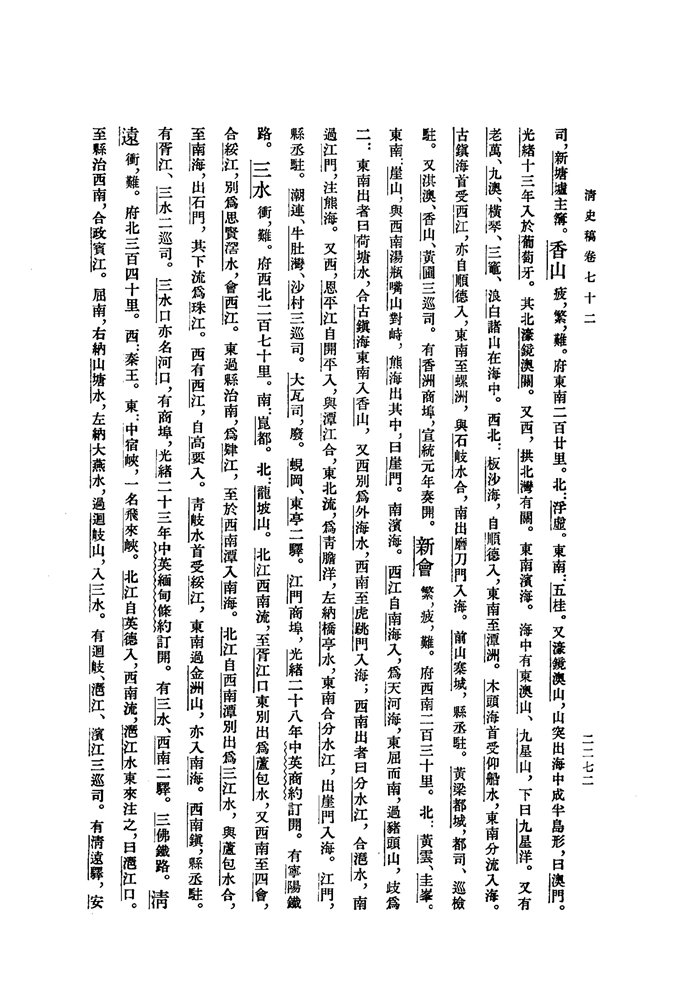 清史稿卷七十二
二二七二
司，新塘墟主簿。香山 疲，繁，難。府東南二百廿里。北：浮虛。東南：五桂。又濠鏡澳山，山突出海中成半島形，曰澳門。
光緒十三年入於葡萄牙。其北濠鏡澳關。又西，拱北灣有關。東南濱海。海中有東澳山、九星山，下曰九星洋。又有
老萬、九澳、橫琴、三竈、浪白諸山在海中。西北：板沙海，自順德入，東南至潭洲。木頭海首受仰船水，東南分流入海。
古鎮海首受西江，亦自順德入，東南至螺洲，與石岐水合，南出磨刀門入海。前山寨城，縣丞駐。黃梁都城，都司、巡檢
駐。又淇澳、香山、黃圃三巡司。有香洲商埠，宣統元年奏開。新會 繁，疲，難。府西南二百三十里。北：黃雲、圭峯。
東南：崖山，與西南湯瓶嘴山對峙，熊海出其中，曰崖門。南濱海。西江自南海入，爲天河海，東屈而南，過豬頭山，歧爲
二：東南出者曰荷塘水，合古鎮海東南入香山，又西別爲外海水，西南至虎跳門入海；西南出者曰分水江，合滘水，南
過江門，注熊海。又西，恩平江自開平入，與潭江合，東北流，爲青膽洋，左納橋亭水，東南合分水江，出崖門入海。江門，
縣丞駐。潮連、牛肚灣、沙村三巡司。大瓦司，廢。蜆岡、東亭二驛。江門商埠，光緒二十八年中英商約訂開。有寧陽鐵
路。三水 衝，難。府西北二百七十里。南：崑都。北：龍坡山。北江西南流，至胥江口東別出爲蘆包水，又西南至四會，
合綏江，別爲思賢滘水，會西江。東過縣治南，爲肄江，至於西南潭入南海。北江自西南潭別出爲三江水，與蘆包水合，
至南海，出石門，其下流爲珠江。西有西江，自高要入。青岐水首受綏江，東南過金洲山，亦入南海。西南鎮，縣丞駐。
有胥江、三水二巡司。三水口亦名河口，有商埠，光緒二十三年中英緬甸條約訂開。有三水、西南二驛。三佛鐵路。清
遠 衝，難。府北三百四十里。西：秦王。東：中宿峽，一名飛來峽。北江自英德入，西南流，滘江水東來注之，曰滘江口。
至縣治西南，合政賓江。屈南，右納山塘水，左納大燕水，過迴岐山，入三水。有迴岐、滘江、濱江三巡司。有清遠驛，安